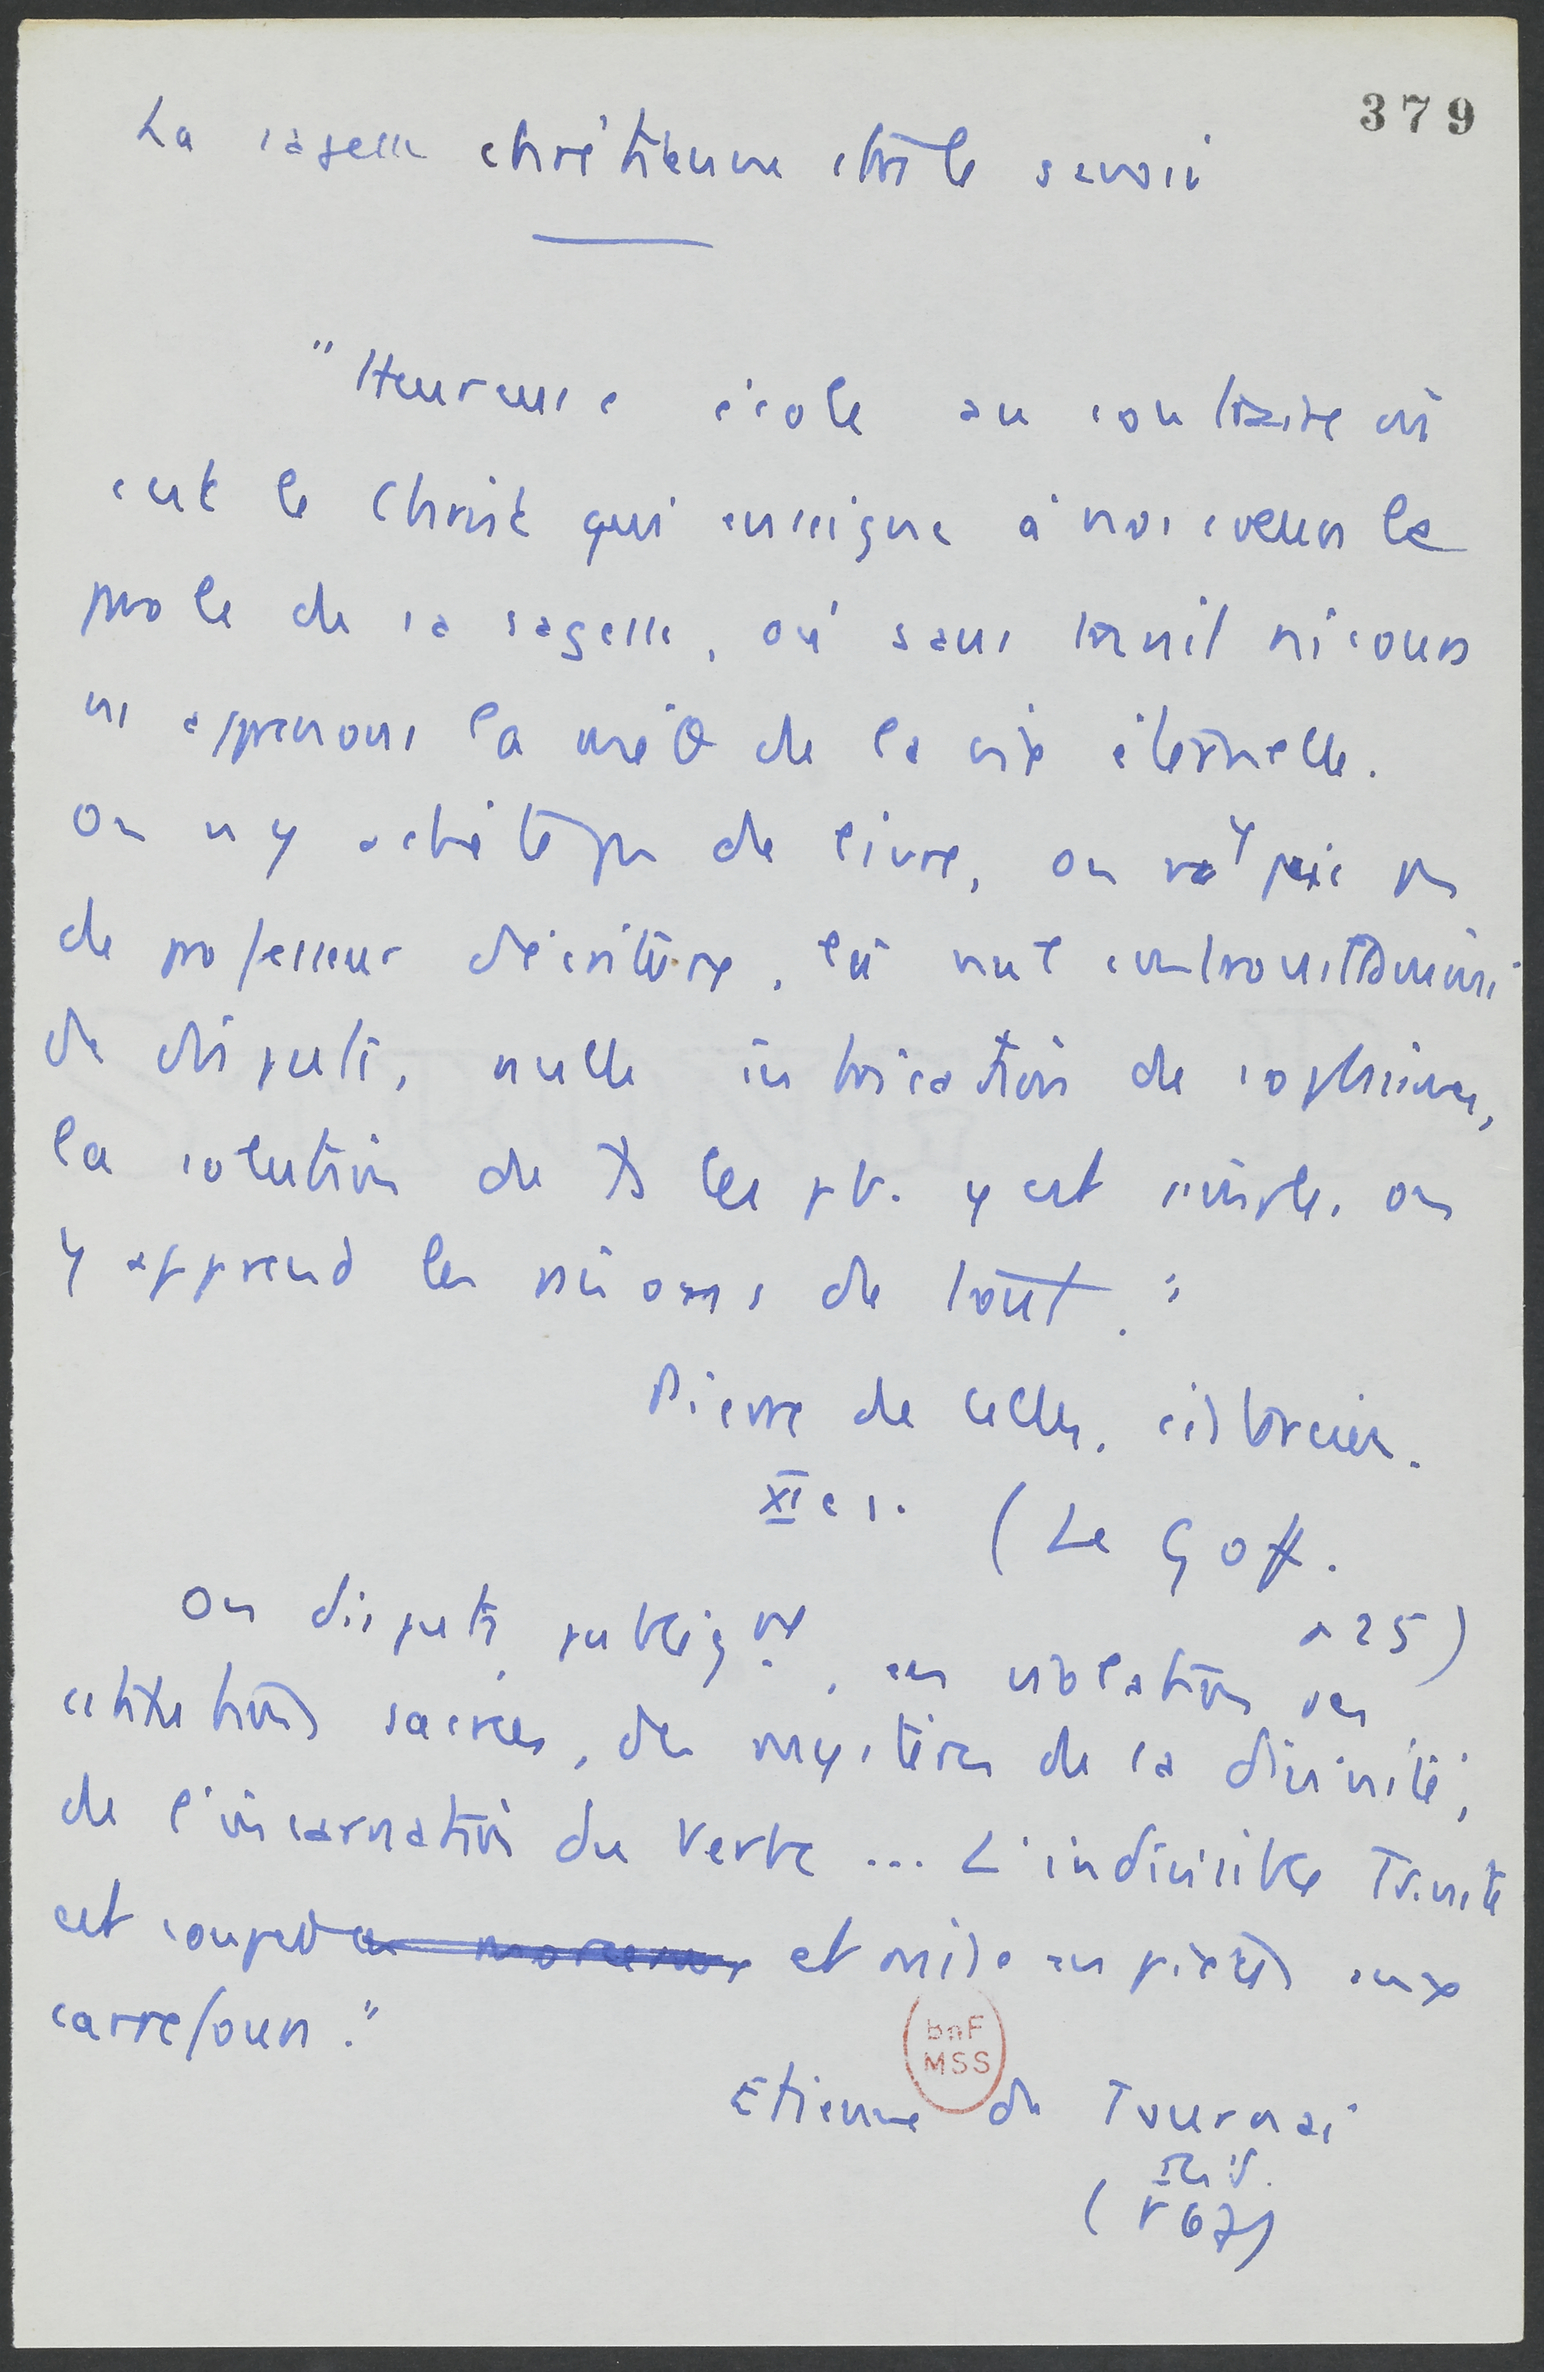 379
La sagesse chrétienne ctre le savoir
"Heureuse école au contraire où
c'est le Christ qui enseigne à nos cœurs la
parole de sa sagesse, où sans travail ni cours
ns apprenons la méth de la vie éternelle.
On n'y achète pas de livre, on n'y paie pas
de professeur d'écriture, là nul
de dispute, nulle intrication de sophismes,
la solution de ts les pb. y est simple, on
y apprend les raisons de tout."
Pierre de Celles, cistercien.
XIIe s. (Le Goff.
p 25)
On dispute publiqt, en violation des
constitutions sacrées, des mystères de la divinité,
de l'incarnation du Verbe ... L'indivisible Trinité
est coupée en morceaux et mise en pièces aux
carrefours."
Etienne de Tournai
(p 67)
bnF
MSS